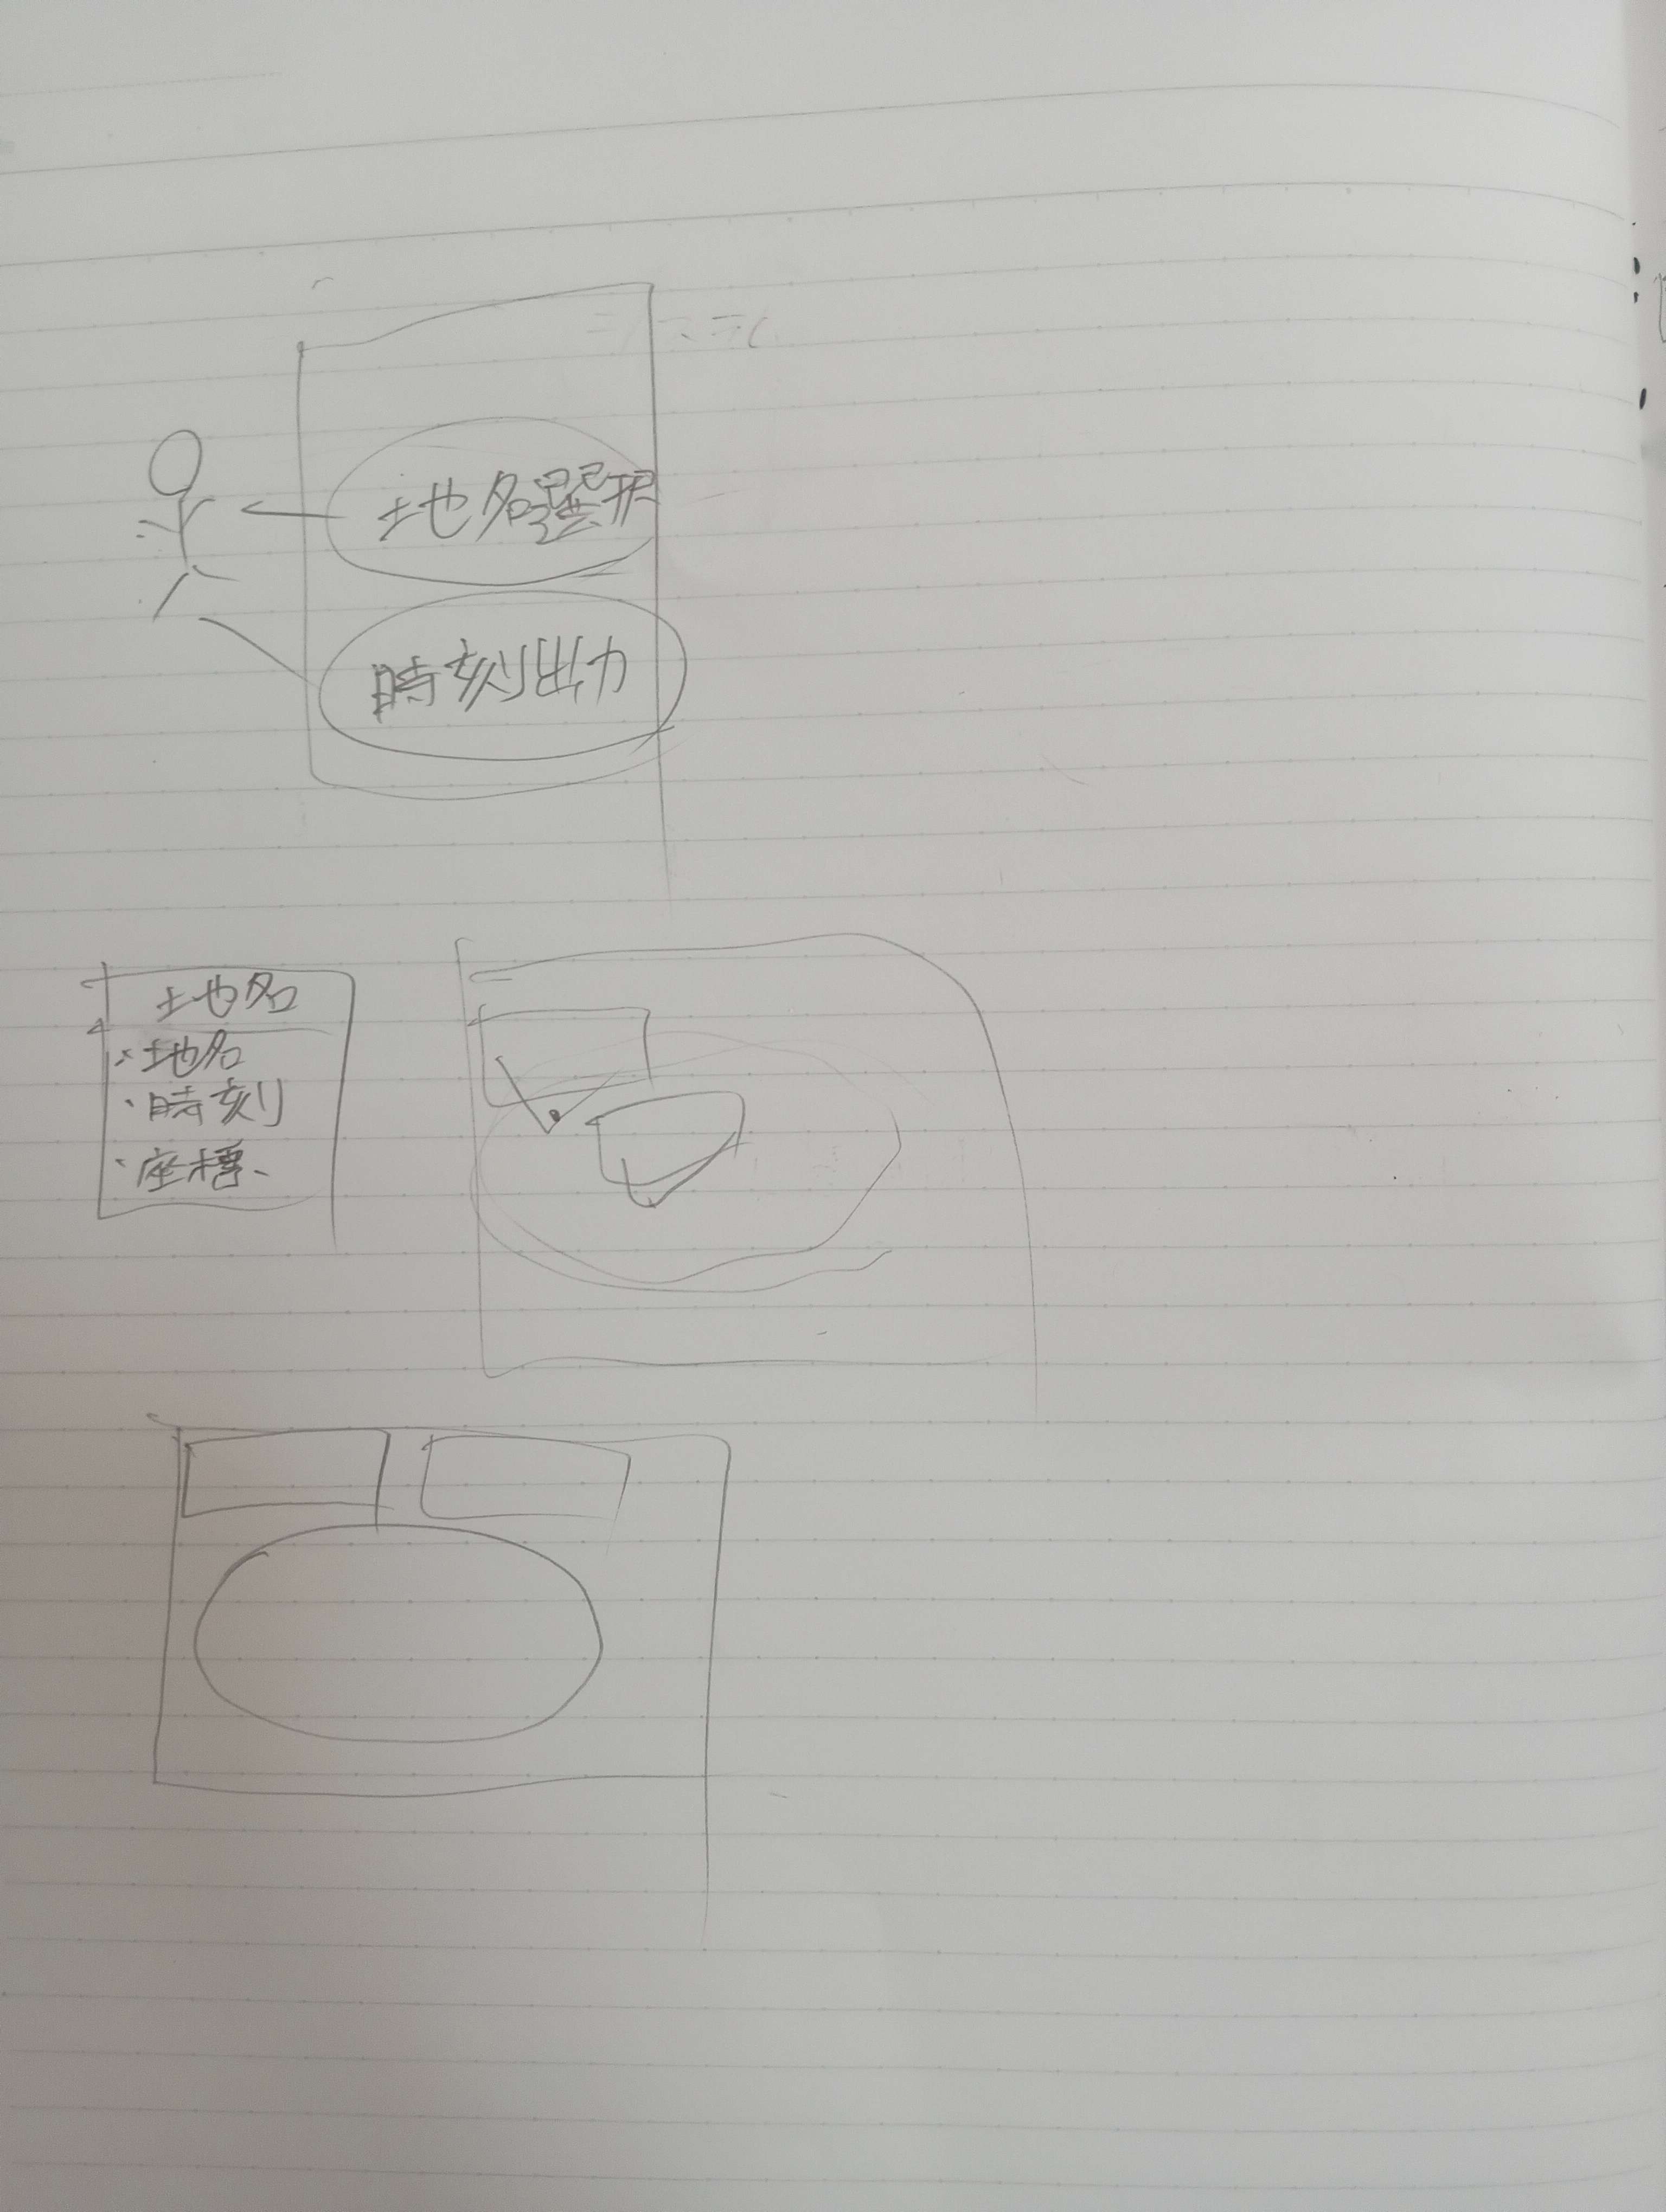 地名選択
時刻出力
地名
・地名
・時刻
・座標